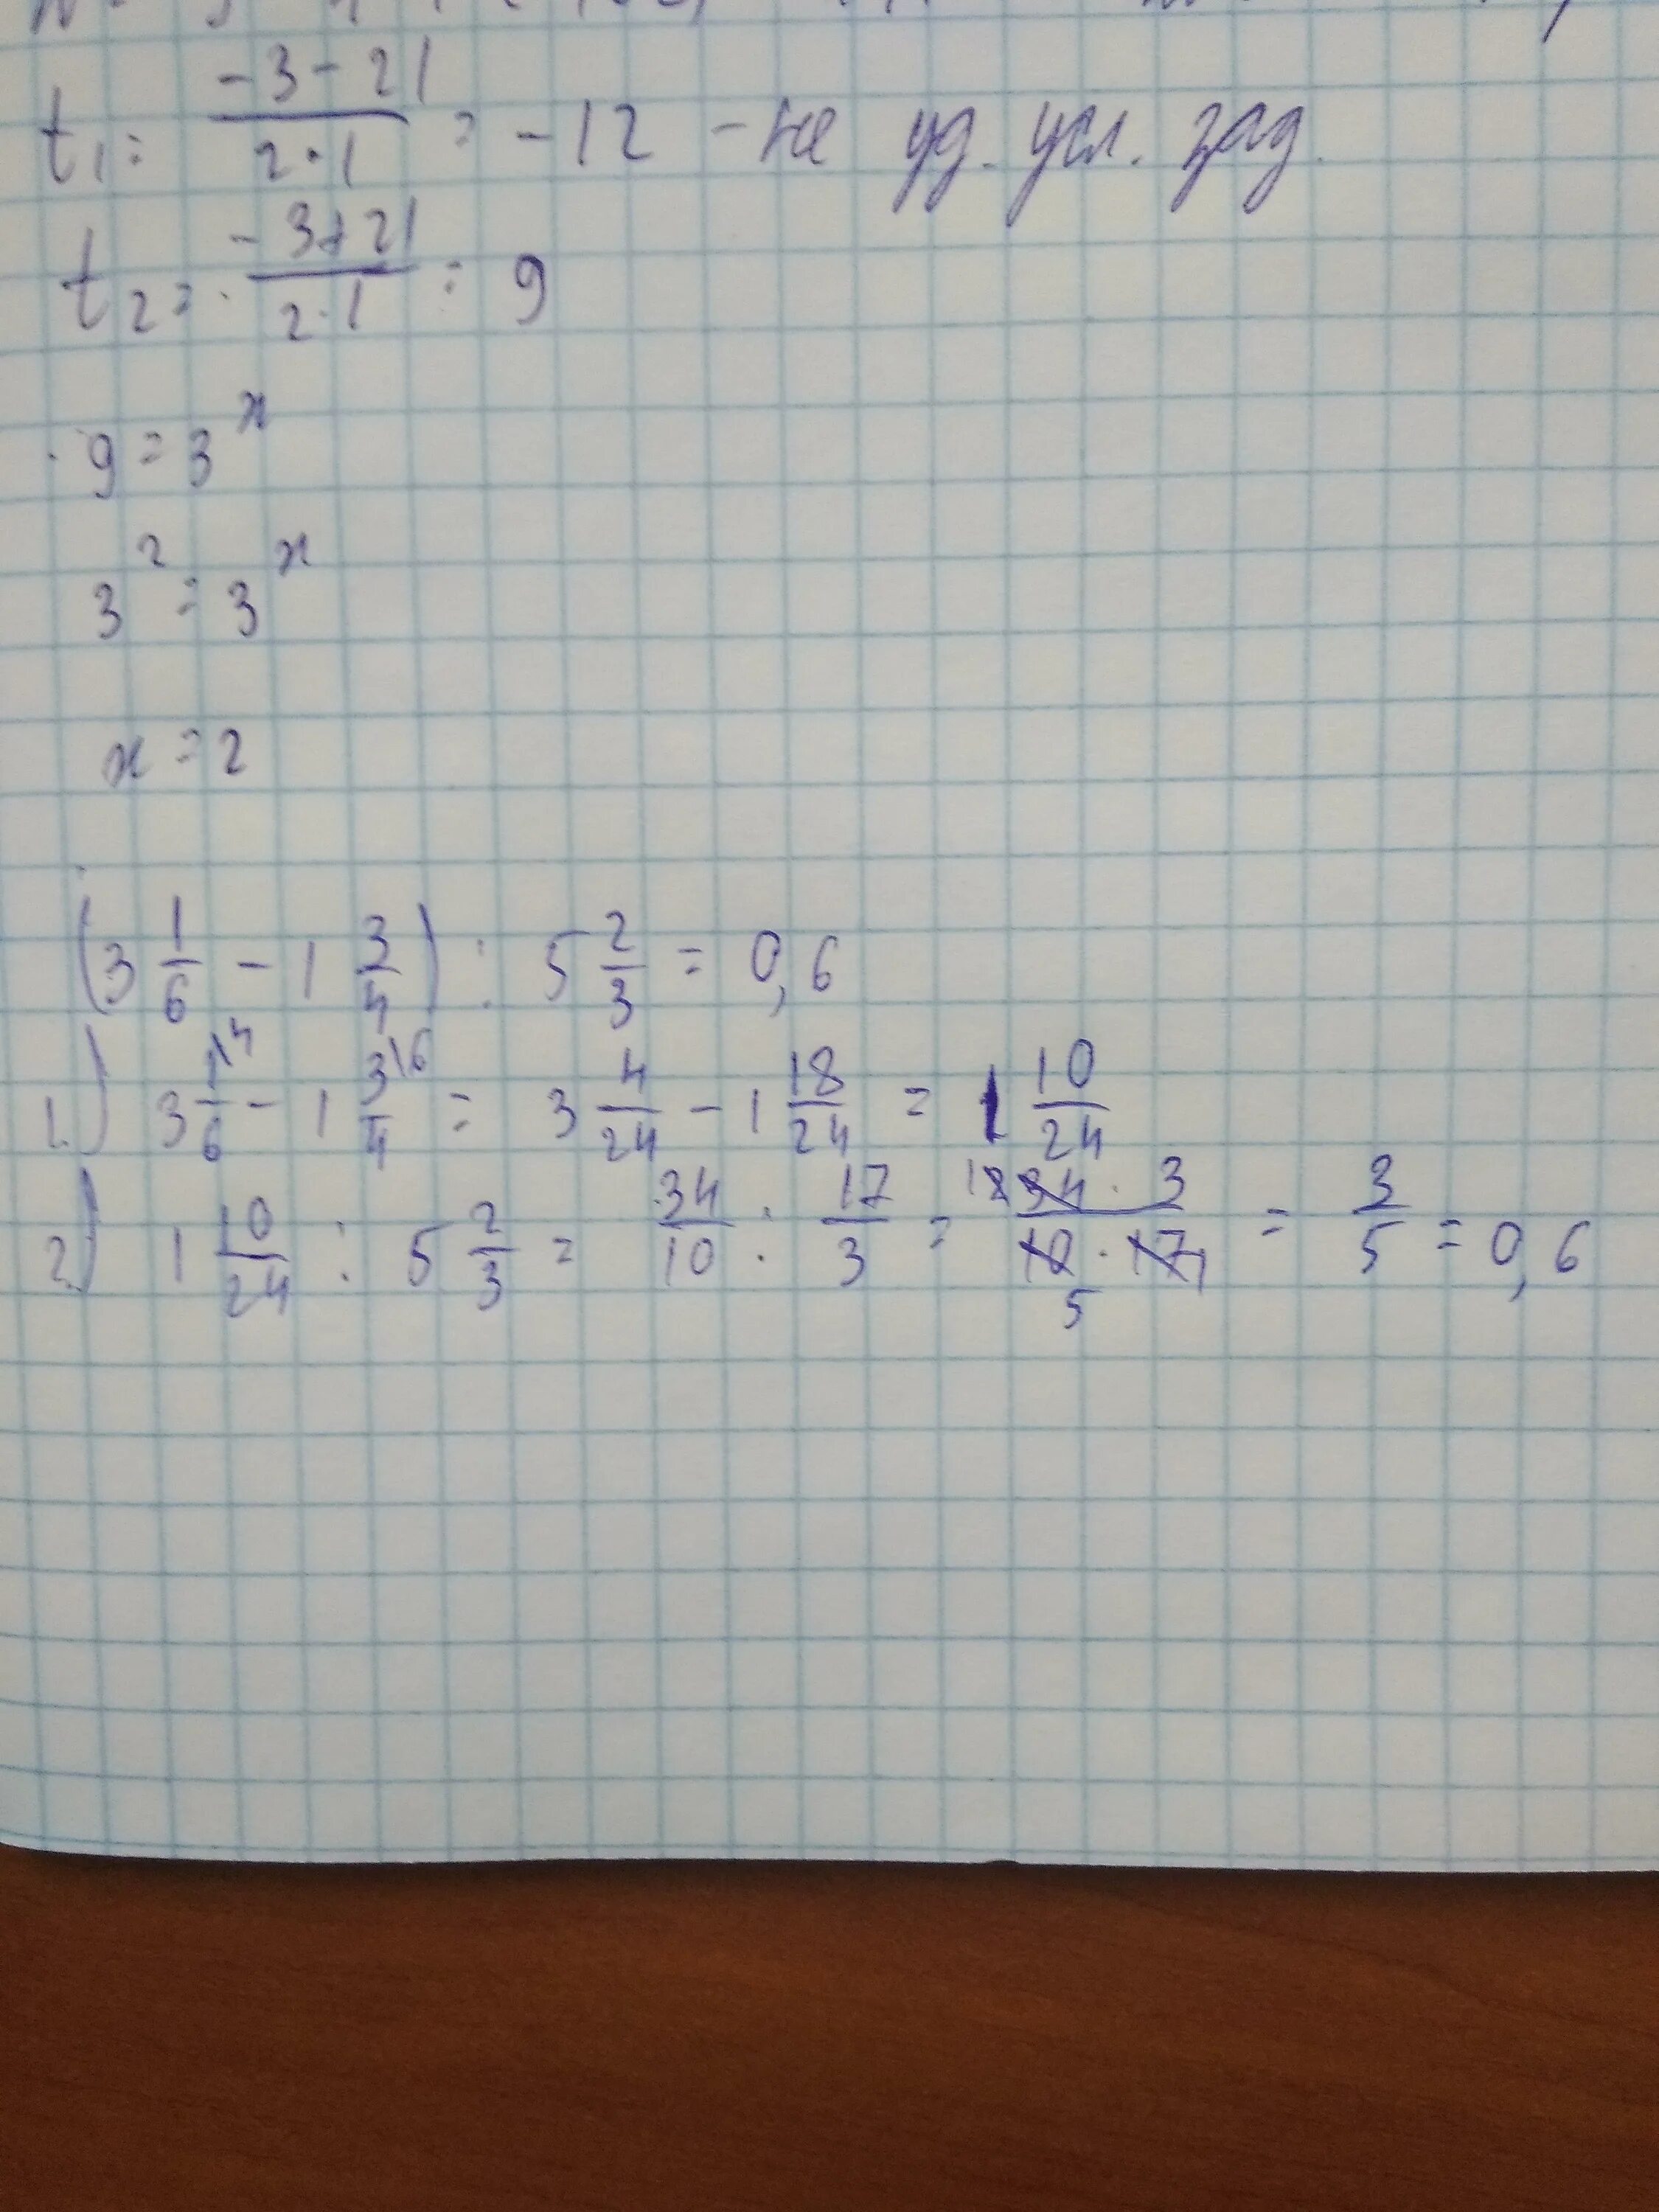 t₁ = (-3-21)/(2·1) = -12 - не уд. усл. зад.
t₂ = (-3+21)/(2·1) = 9
9 = 3^x
3² = 3^x
x = 2
(3 1/6 - 1 3/4) : 5 2/3 = 0,6
1.) 3 1/6 \4 - 1 3/4 \6 = 3 4/24 - 1 18/24 = 1 10/24
2.) 1 10/24 : 5 2/3 = 34/10 : 17/3 = (34 · 3)/(10 · 17) = 3/5 = 0,6